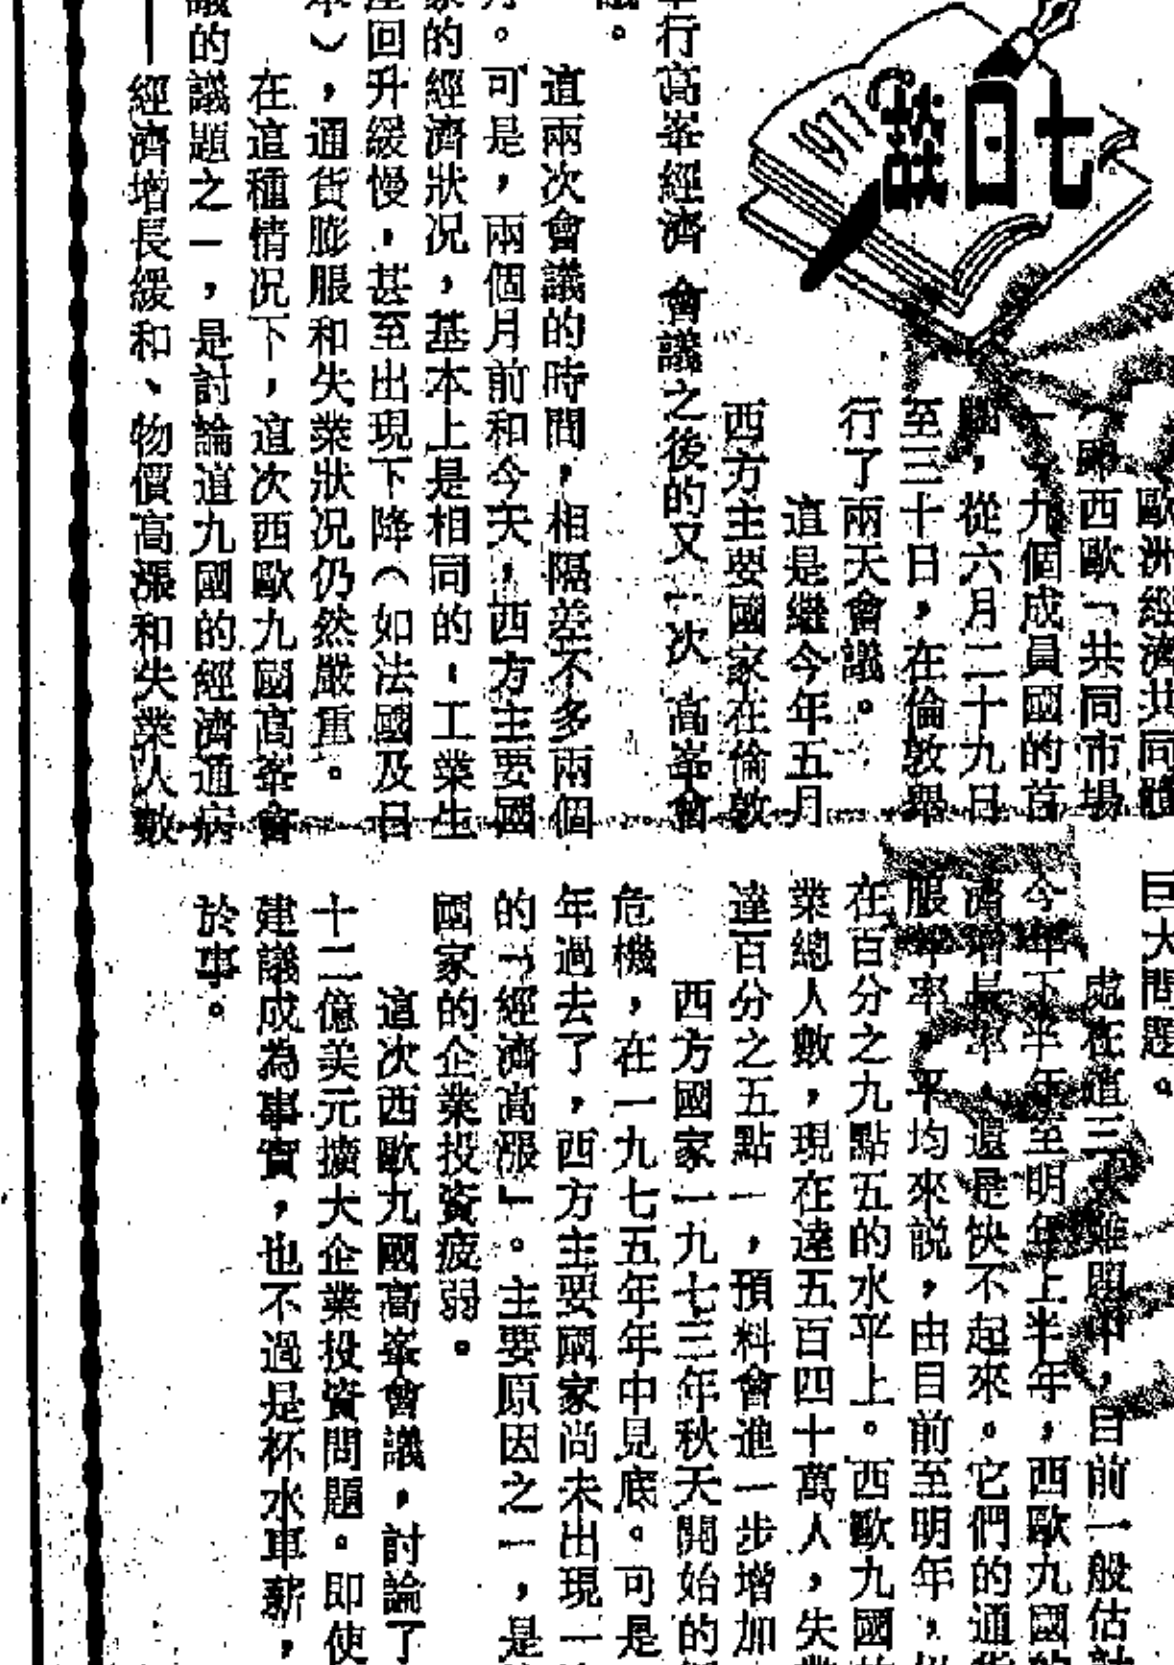 1977
七日
歐洲經濟共同體
（即西歐「共同市場
）九個成員國的首
腦，從六月二十九日
至三十日，在倫敦舉
行了兩天會議。
這是繼今年五月
西方主要國家在倫敦
舉行高峯經濟會議之後的又一次高峯會
議。
這兩次會議的時間，相隔差不多兩個
月。可是，兩個月前和今天，西方主要國
家的經濟狀況，基本上是相同的：工業生
產回升緩慢，甚至出現下降（如法國及日
本），通貨膨脹和失業狀況仍然嚴重。
在這種情況下，這次西歐九國高峯會
議的議題之一，是討論這九國的經濟通病
——經濟增長緩和、物價高漲和失業人數
巨大問題。
處在這三大難題中，目前一般估計
今年下半年至明年上半年，西歐九國的
濟增長率，還是快不起來。它們的通貨
脹年率，平均來說，由目前至明年，
在百分之九點五的水平上。西歐九國
業總人數，現在達五百四十萬人，失業
達百分之五點一，預料會進一步增加
西方國家一九七三年秋天開始的
危機，在一九七五年年中見底。可是
年過去了，西方主要國家尚未出現一
的「經濟高漲」。主要原因之一，是
國家的企業投資疲弱。
這次西歐九國高峯會議，討論了
十二億美元擴大企業投資問題。即使
建議成為事實，也不過是杯水車薪，
於事。